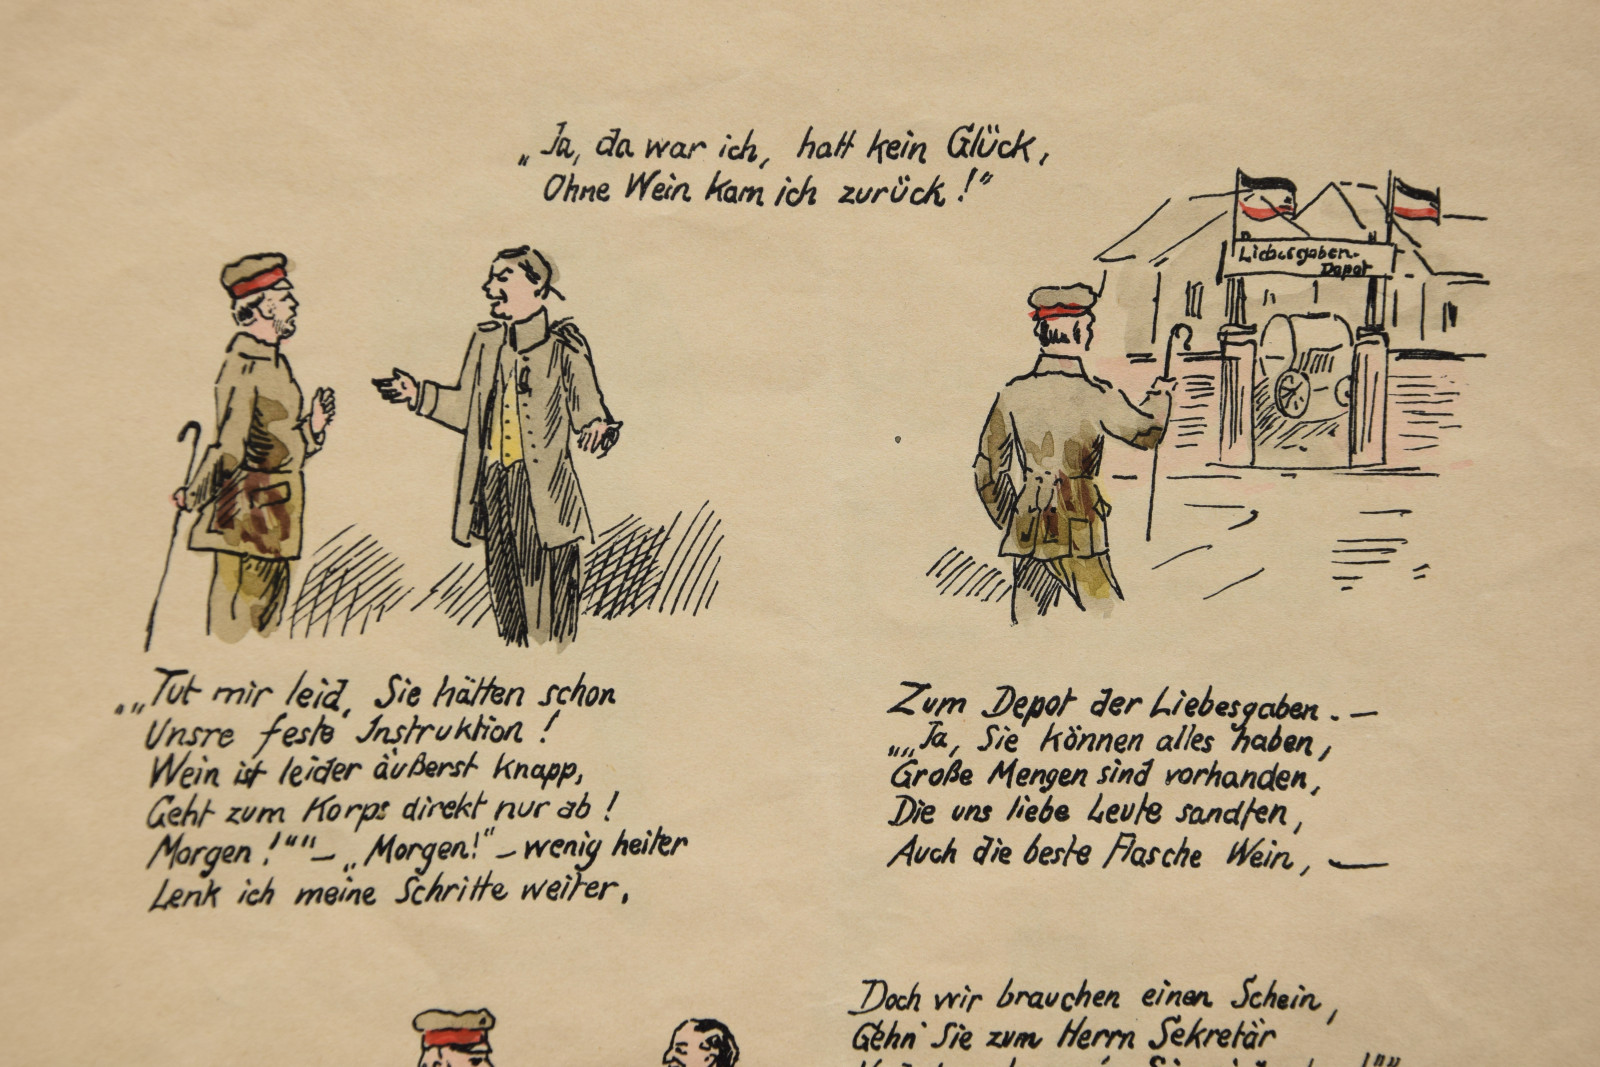 „Ja, da war ich, hatt kein Glück,
Ohne Wein kam ich zurück!“
Liebesgaben-
Depot
„„Tut mir leid, Sie hätten schon
Unsre feste Instruktion!
Wein ist leider äußerst knapp,
Geht zum Korps direkt nur ab!
Morgen!““ — „Morgen!“ — wenig heiter
Lenk ich meine Schritte weiter.
Zum Depot der Liebesgaben. —
„„Ja, Sie können alles haben,
Große Mengen sind vorhanden,
Die uns liebe Leute sandten,
Auch die beste Flasche Wein, —
Doch wir brauchen einen Schein,
Gehn' Sie zum Herrn Sekretär